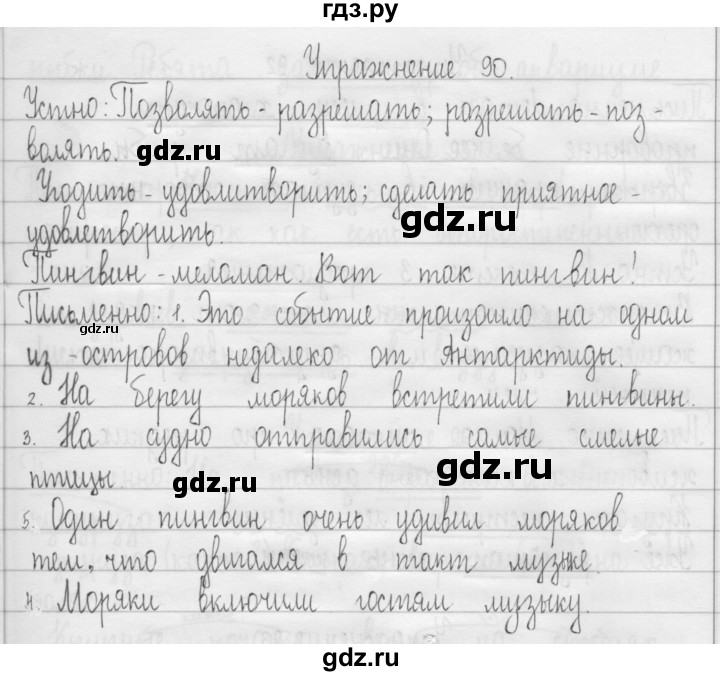 гдз.ру
Упражнение 90.
Устно: Позволять - разрешать; разрешать - поз -
волять.
gdz.ru
Угодить - удовлитворить; сделать приятное -
удовлетворить.
gdz.ru
Пингвин - меломан. Вот так пингвин!
Письменно: 1. Это событие произошло на одном
gdz.ru
из - островов недалеко от Антарктиды.
2. На берегу моряков встретили пингвины.
3. На судно отправились самые смелые
птицы.
gdz.ru
gdz.ru
5. Один пингвин очень удивил моряков
тем, что двигался в такт музыке.
4. Моряки включили гостям музыку.
gdz.ru
gdz.ru